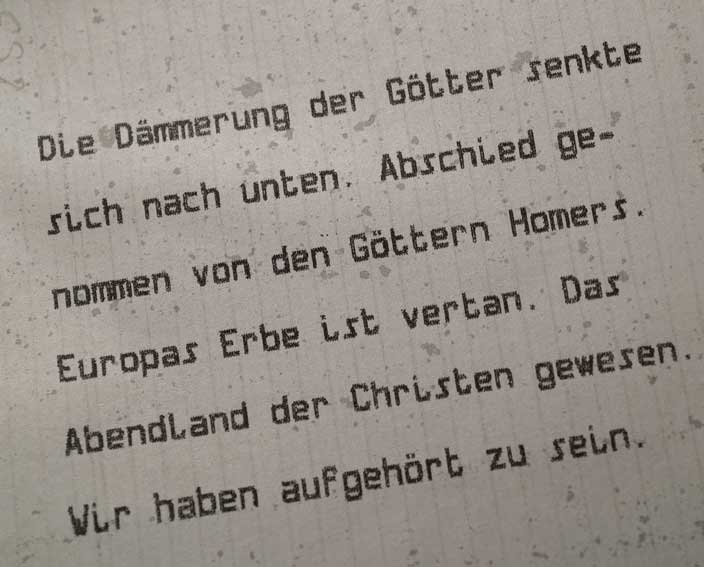 Die Dämmerung der Götter senkte
sich nach unten. Abschied ge-
nommen von den Göttern Homers.
Europas Erbe ist vertan. Das
Abendland der Christen gewesen.
Wir haben aufgehört zu sein.